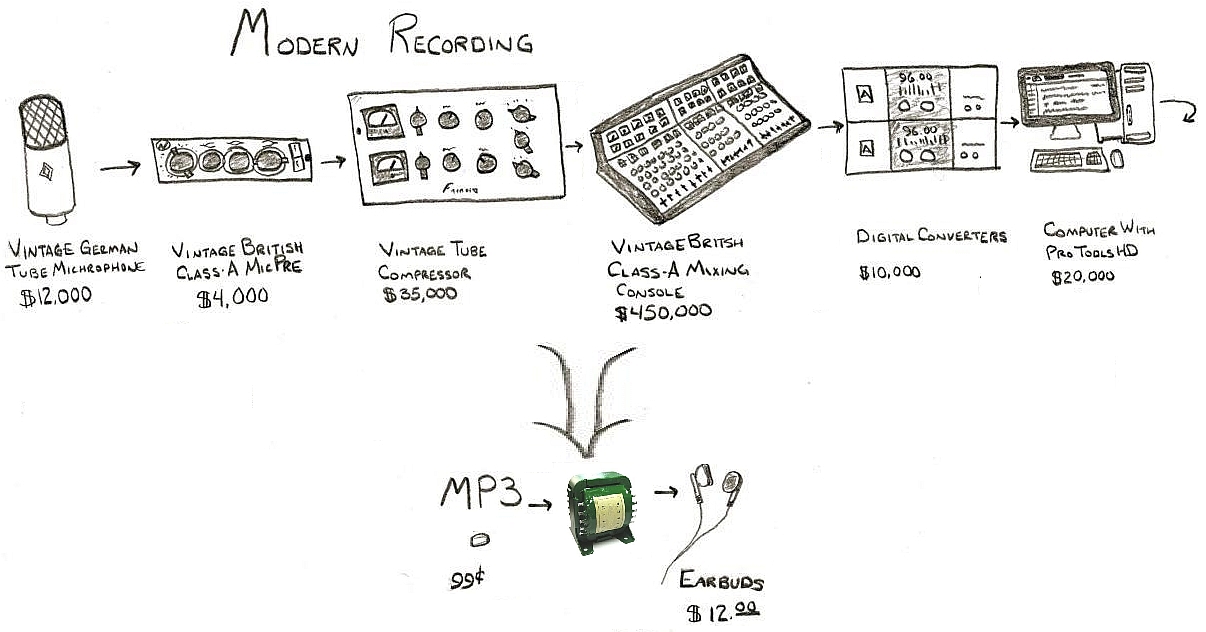 MODERN RECORDING
96.00
A
96.00
A
VINTAGE GERMAN
TUBE MICHROPHONE
$12,000
VINTAGE BRITISH
CLASS-A MIC PRE
$4,000
VINTAGE TUBE
COMPRESSOR
$35,000
VINTAGE BRITSH
CLASS-A MIXING
CONSOLE
$450,000
DIGITAL CONVERTERS
$10,000
COMPUTER WITH
PRO TOOLS HD
$20,000
MP3
99¢
EARBUDS
$12.00